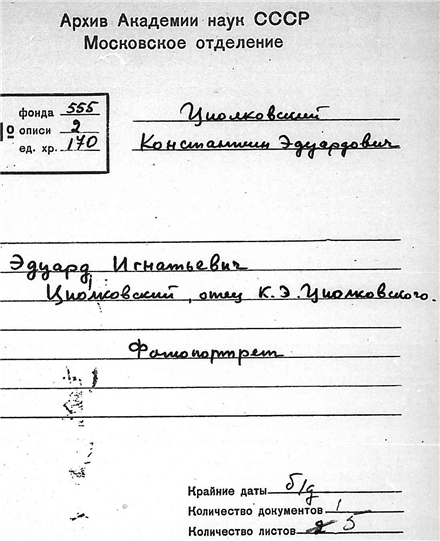 Архив Академии наук СССР
Московское отделение
фонда 555
№ описи 2
ед. хр. 170
Циолковский
Константин Эдуардович
Эдуард Игнатьевич
Циолковский, отец К.Э.Циолковского.
Фотопортрет
Крайние даты б/д
Количество документов 1
Количество листов 5